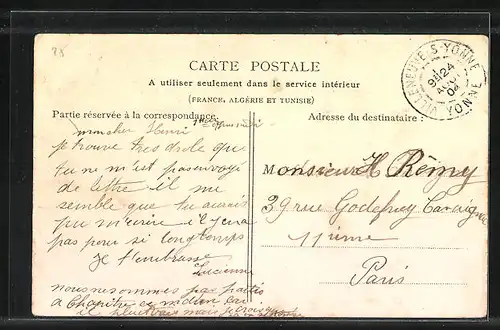 28
CARTE POSTALE
A utiliser seulement dans le service intérieur
(FRANCE, ALGÉRIE ET TUNISIE)
VILLENEUVE-S-YONNE
24
AOUT
04
YONNE
Partie réservée à la correspondance.
Adresse du destinataire :
mon cher Henri
je trouve très drole que
tu ne m'est pas envoyé
de lettre il me
semble que tu aurais
pu m'écrire il y en a
pas pour si longtemps
Je t'embrasse
Lucienne
nous ne sommes pas partis
a ce matin car
il pleuvait mais
Monsieur H Rémy
39 rue Godefroy Cavaignac
11ième
Paris